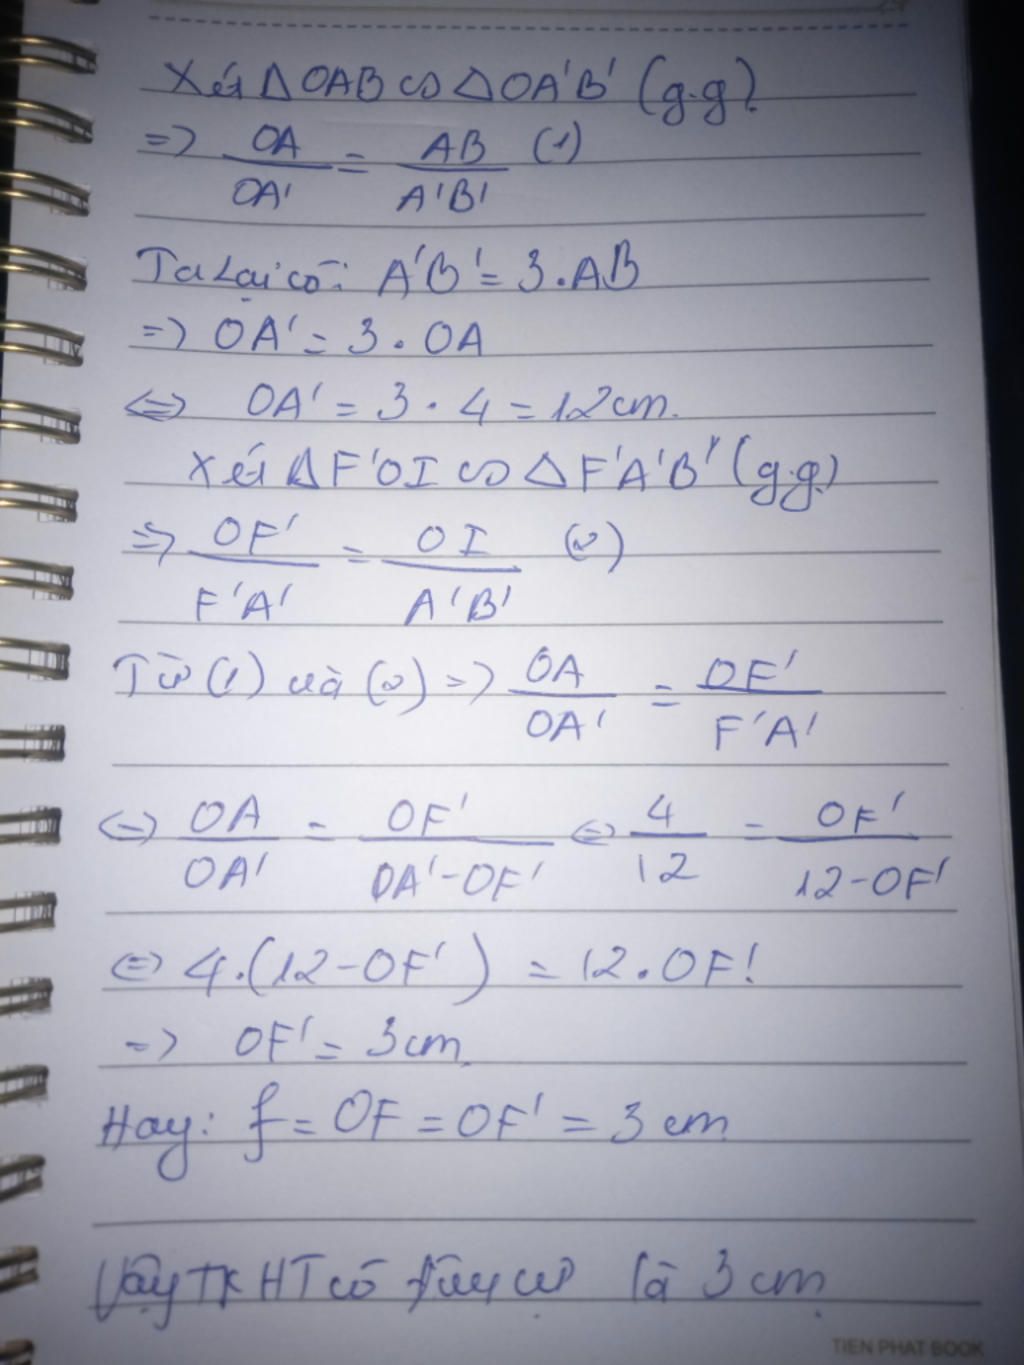 Xét ΔOAB ∽ ΔOA'B' (g.g)
=> OA/OA' = AB/A'B' (1)
Ta lại có: A'B' = 3.AB
=> OA' = 3.OA
<=> OA' = 3.4 = 12cm.
Xét ΔF'OI ∽ ΔF'A'B' (g.g)
=> OF'/F'A' = OI/A'B' (2)
Từ (1) và (2) => OA/OA' = OF'/F'A'
<=> OA/OA' = OF'/OA'-OF' <=> 4/12 = OF'/12-OF'
<=> 4.(12-OF') = 12.OF'
=> OF' = 3cm
Hay: f = OF = OF' = 3cm
Vậy TKHT có tiêu cự là 3cm
TIEN PHAT BOOK